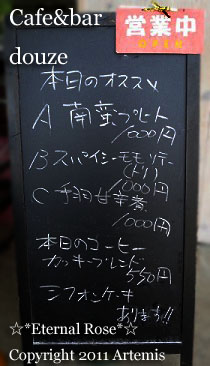 Cafe&bar
douze
営業中
本日のオススメ
A 南蛮プレート
1000円
B スパイシーモモソテー
(トリ)
1000円
C 手羽甘辛煮
1000円
本日のコーヒー
ガッキーブレンド
550円
シフォンケーキ
あります!!
☆*Eternal Rose*☆
Copyright 2011 Artemis